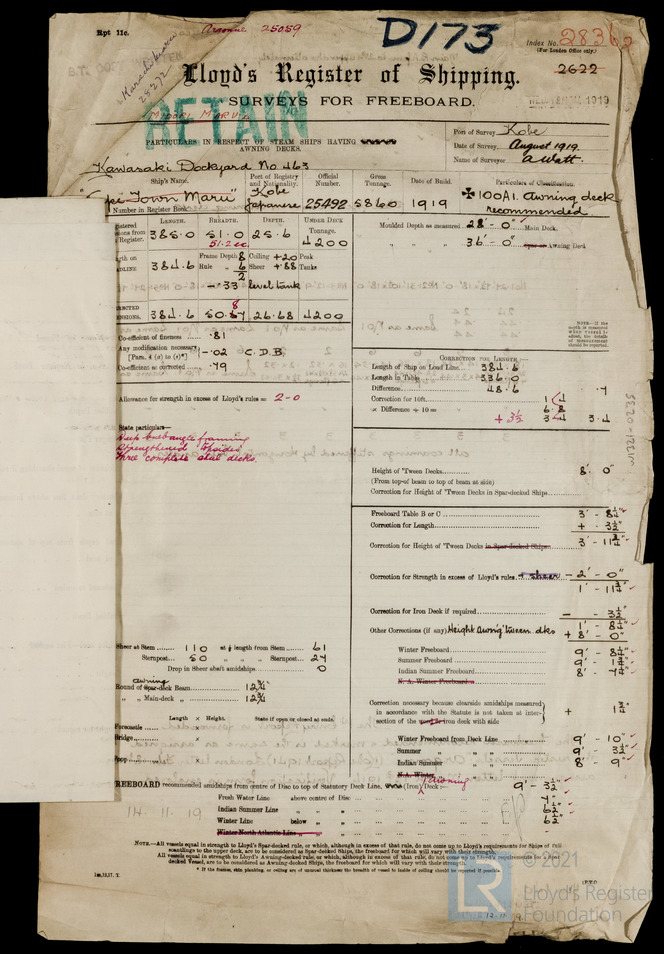 Rpt 11c.
Arconne 25059
D173
Index No. 28362
(For London Office only.)
2622
Lloyd's Register of Shipping.
SURVEYS FOR FREEBOARD.
RETAIN
PARTICULARS IN RESPECT OF STEAM SHIPS HAVING
AWNING DECKS.
Port of Survey Kobe
Date of Survey August 1919.
Name of Surveyor A Watt.
Kawasaki Dockyard No. 463
Ship's Name. Port of Registry and Nationality. Official Number. Gross Tonnage. Date of Build. Particulars of Classification.
Town Maru" Kobe Japanese 25492 5860 1919 ✠100A1. Awning deck recommended
Number in Register Book
LENGTH. BREADTH. DEPTH. UNDER DECK Tonnage.
385.0 51.0 25.6 4200
51.2
Moulded Depth as measured 28'-0" Main Deck.
" " " 36'-0" Awning Deck
Frame Depth 8 Ceiling +20 Peak
384.6 Rule 6 Sheer +.88 Tanks
2
-.33 level tank
384.6 50.67 26.68 4200
8
Co-efficient of fineness .81
Any modification necessary
[Par. 4 (a) to (e)*] -.02 C.D.B.
Co-efficient as corrected .79
Allowance for strength in excess of Lloyd's rules = 2-0
State particulars—
Deep bulb angle framing
Strengthened
Three complete steel decks.
CORRECTION FOR LENGTH—
Length of Ship on Load Line 384.6
Length in Table 336.0
Difference 48.6
Correction for 10ft. 1.4 .7
× Difference ÷ 10 = 6.8 3.4
+ 3½ 3.4
NOTE—If the depth is measured when vessel is afloat, the details of measurement should be reported.
Height of 'Tween Decks 8'. 0"
(From top of beam to top of beam at side)
Correction for Height of 'Tween Decks in Spar-decked Ships
Freeboard Table B or C 3' - 8¼"
Correction for Length + . 3½"
Correction for Height of 'Tween Decks in Spar-decked Ships 3' - 11¾"
Correction for Strength in excess of Lloyd's rules. - 2' - 0"
1' - 11¾"
Correction for Iron Deck if required - 3½"
1' - 8¼"
Other Corrections (if any) Height Awn'g tween dks + 8' - 0"
Winter Freeboard 9' - 8¼"
Summer Freeboard 9' - 1¾"
Indian Summer Freeboard 8' - 7¼"
N. A. Winter Freeboard
Correction necessary because clearside amidships measured in accordance with the Statute is not taken at intersection of the iron deck with side + 1¾"
Winter Freeboard from Deck Line 9' - 10"
Summer " " " " 9' - 3½"
Indian Summer " " " " 8' - 9"
N.A. Winter
Sheer at Stem 110 at ⅛ length from Stem 61
Sternpost 50 " " " Sternpost 27
Drop in Sheer abaft amidships 0
awning
Round of Spar-deck Beam 12¾
" " Main-deck " 12¾
Length × Height. State if open or closed at ends.
Forecastle
Bridge
Poop
FREEBOARD recommended amidships from centre of Disc to top of Statutory Deck Line, (Iron) Awning Deck:— 9' - 3½"
Fresh Water Line above centre of Disc
Indian Summer Line " " 6½"
Winter Line below " " 6½"
Winter North Atlantic Line " "
NOTE.—All vessels equal in strength to Lloyd's Spar-decked rule, or which, although in excess of that rule, do not come up to Lloyd's requirements for Ships of full scantlings to the upper deck, are to be considered as Spar-decked Ships, the freeboard for which will vary with their strength.
All vessels equal in strength to Lloyd's Awning-decked rule, or which, although in excess of that rule, do not come up to Lloyd's requirements for a Spar decked Vessel, are to be considered as Awning-decked Ships, the freeboard for which will vary with their strength.
* If the frames, skin planking, or ceiling are of unusual thickness the breadth of vessel to inside of ceiling should be reported if possible.
P.T.O.
© 2021
LR
Lloyd's Register
Foundation